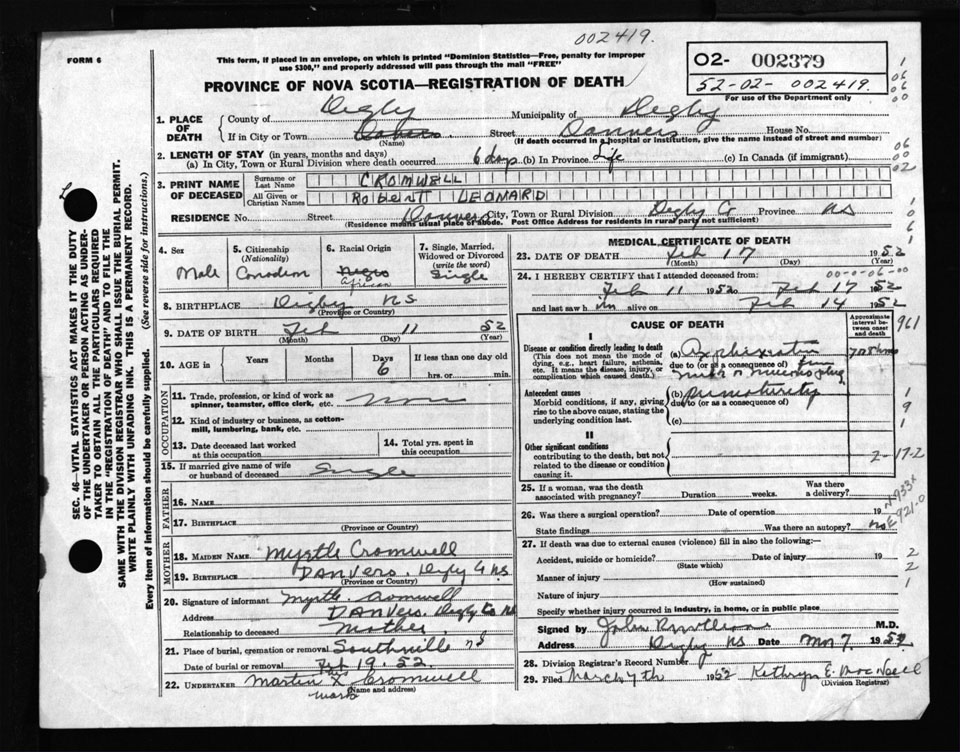 002419.
FORM 6
This form, if placed in an envelope, on which is printed "Dominion Statistics—Free, penalty for improper
use $300," and properly addressed will pass through the mail "FREE"
02- 002379
52-02- 002419.
For use of the Department only
PROVINCE OF NOVA SCOTIA—REGISTRATION OF DEATH
1. PLACE OF DEATH
County of Digby Municipality of Digby
If in City or Town Street Danvers House No.
(Name) (If death occurred in a hospital or institution, give the name instead of street and number)
2. LENGTH OF STAY (in years, months and days)
(a) In City, Town or Rural Division where death occurred 6 days (b) In Province Life (c) In Canada (if immigrant)
3. PRINT NAME OF DECEASED
Surname or Last Name CROMWELL
All Given or Christian Names ROBERT LEONARD
RESIDENCE No. Street Danvers City, Town or Rural Division Digby Co Province NS
(Residence means usual place of abode. Post Office Address for residents in rural part not sufficient)
4. Sex
Male
5. Citizenship
(Nationality)
Canadian
6. Racial Origin
Negro
African
7. Single, Married,
Widowed or Divorced
(write the word)
Single
8. BIRTHPLACE Digby NS
(Province or Country)
9. DATE OF BIRTH Feb 11 52
(Month) (Day) (Year)
10. AGE in Years Months Days 6 If less than one day old
hrs. or min.
OCCUPATION
11. Trade, profession, or kind of work as
spinner, teamster, office clerk, etc. none
12. Kind of industry or business, as cotton-
mill, lumbering, bank, etc.
13. Date deceased last worked
at this occupation
14. Total yrs. spent in
this occupation
15. If married give name of wife
or husband of deceased Single
FATHER
16. NAME
17. BIRTHPLACE
(Province or Country)
MOTHER
18. MAIDEN NAME Myrtle Cromwell
19. BIRTHPLACE DANVERS. Digby Co NS
(Province or Country)
20. Signature of informant Myrtle Cromwell
Address DANVERS. Digby Co NS
Relationship to deceased Mother
21. Place of burial, cremation or removal Southville NS
Date of burial or removal Feb 19. 52.
22. UNDERTAKER Martin X Cromwell
his mark
(Name and address)
MEDICAL CERTIFICATE OF DEATH
23. DATE OF DEATH Feb 17 1952
(Month) (Day)
24. I HEREBY CERTIFY that I attended deceased from: 00-0-06-00
Feb 11 1952 to Feb 17 1952
and last saw h im alive on Feb 14 1952
CAUSE OF DEATH
Approximate
interval be-
tween onset
and death
I
Disease or condition directly leading to death
(This does not mean the mode of
dying, e.g., heart failure, asthenia,
etc. It means the disease, injury, or
complication which caused death.)
(a) Asphyxiation
due to (or as a consequence of)
Antecedent causes
Morbid conditions, if any, giving
rise to the above cause, stating the
underlying condition last.
(b) prematurity
due to (or as a consequence of)
(c)
II
Other significant conditions
contributing to the death, but not
related to the disease or condition
causing it.
2-17-2
961
25. If a woman, was the death
associated with pregnancy? Duration weeks. Was there
a delivery?
26. Was there a surgical operation? Date of operation 19
State findings Was there an autopsy? no
N933X
E921.0
27. If death was due to external causes (violence) fill in also the following:—
Accident, suicide or homicide? Date of injury 19
(State which)
Manner of injury
(How sustained)
Nature of injury
Specify whether injury occurred in industry, in home, or in public place
Signed by John M.D.
Address Digby NS Date Mar 7 1952
28. Division Registrar's Record Number
29. Filed March 7th 1952 Kathryn E. MacNeill
(Division Registrar)
SEC. 46—VITAL STATISTICS ACT MAKES IT THE DUTY
OF THE UNDERTAKER OR PERSON ACTING AS UNDER-
TAKER TO OBTAIN ALL THE PARTICULARS REQUIRED
IN THE "REGISTRATION OF DEATH" AND TO FILE THE
SAME WITH THE DIVISION REGISTRAR WHO SHALL ISSUE THE BURIAL PERMIT.
WRITE PLAINLY WITH UNFADING INK. THIS IS A PERMANENT RECORD.
Every item of information should be carefully supplied. (See reverse side for instructions.)